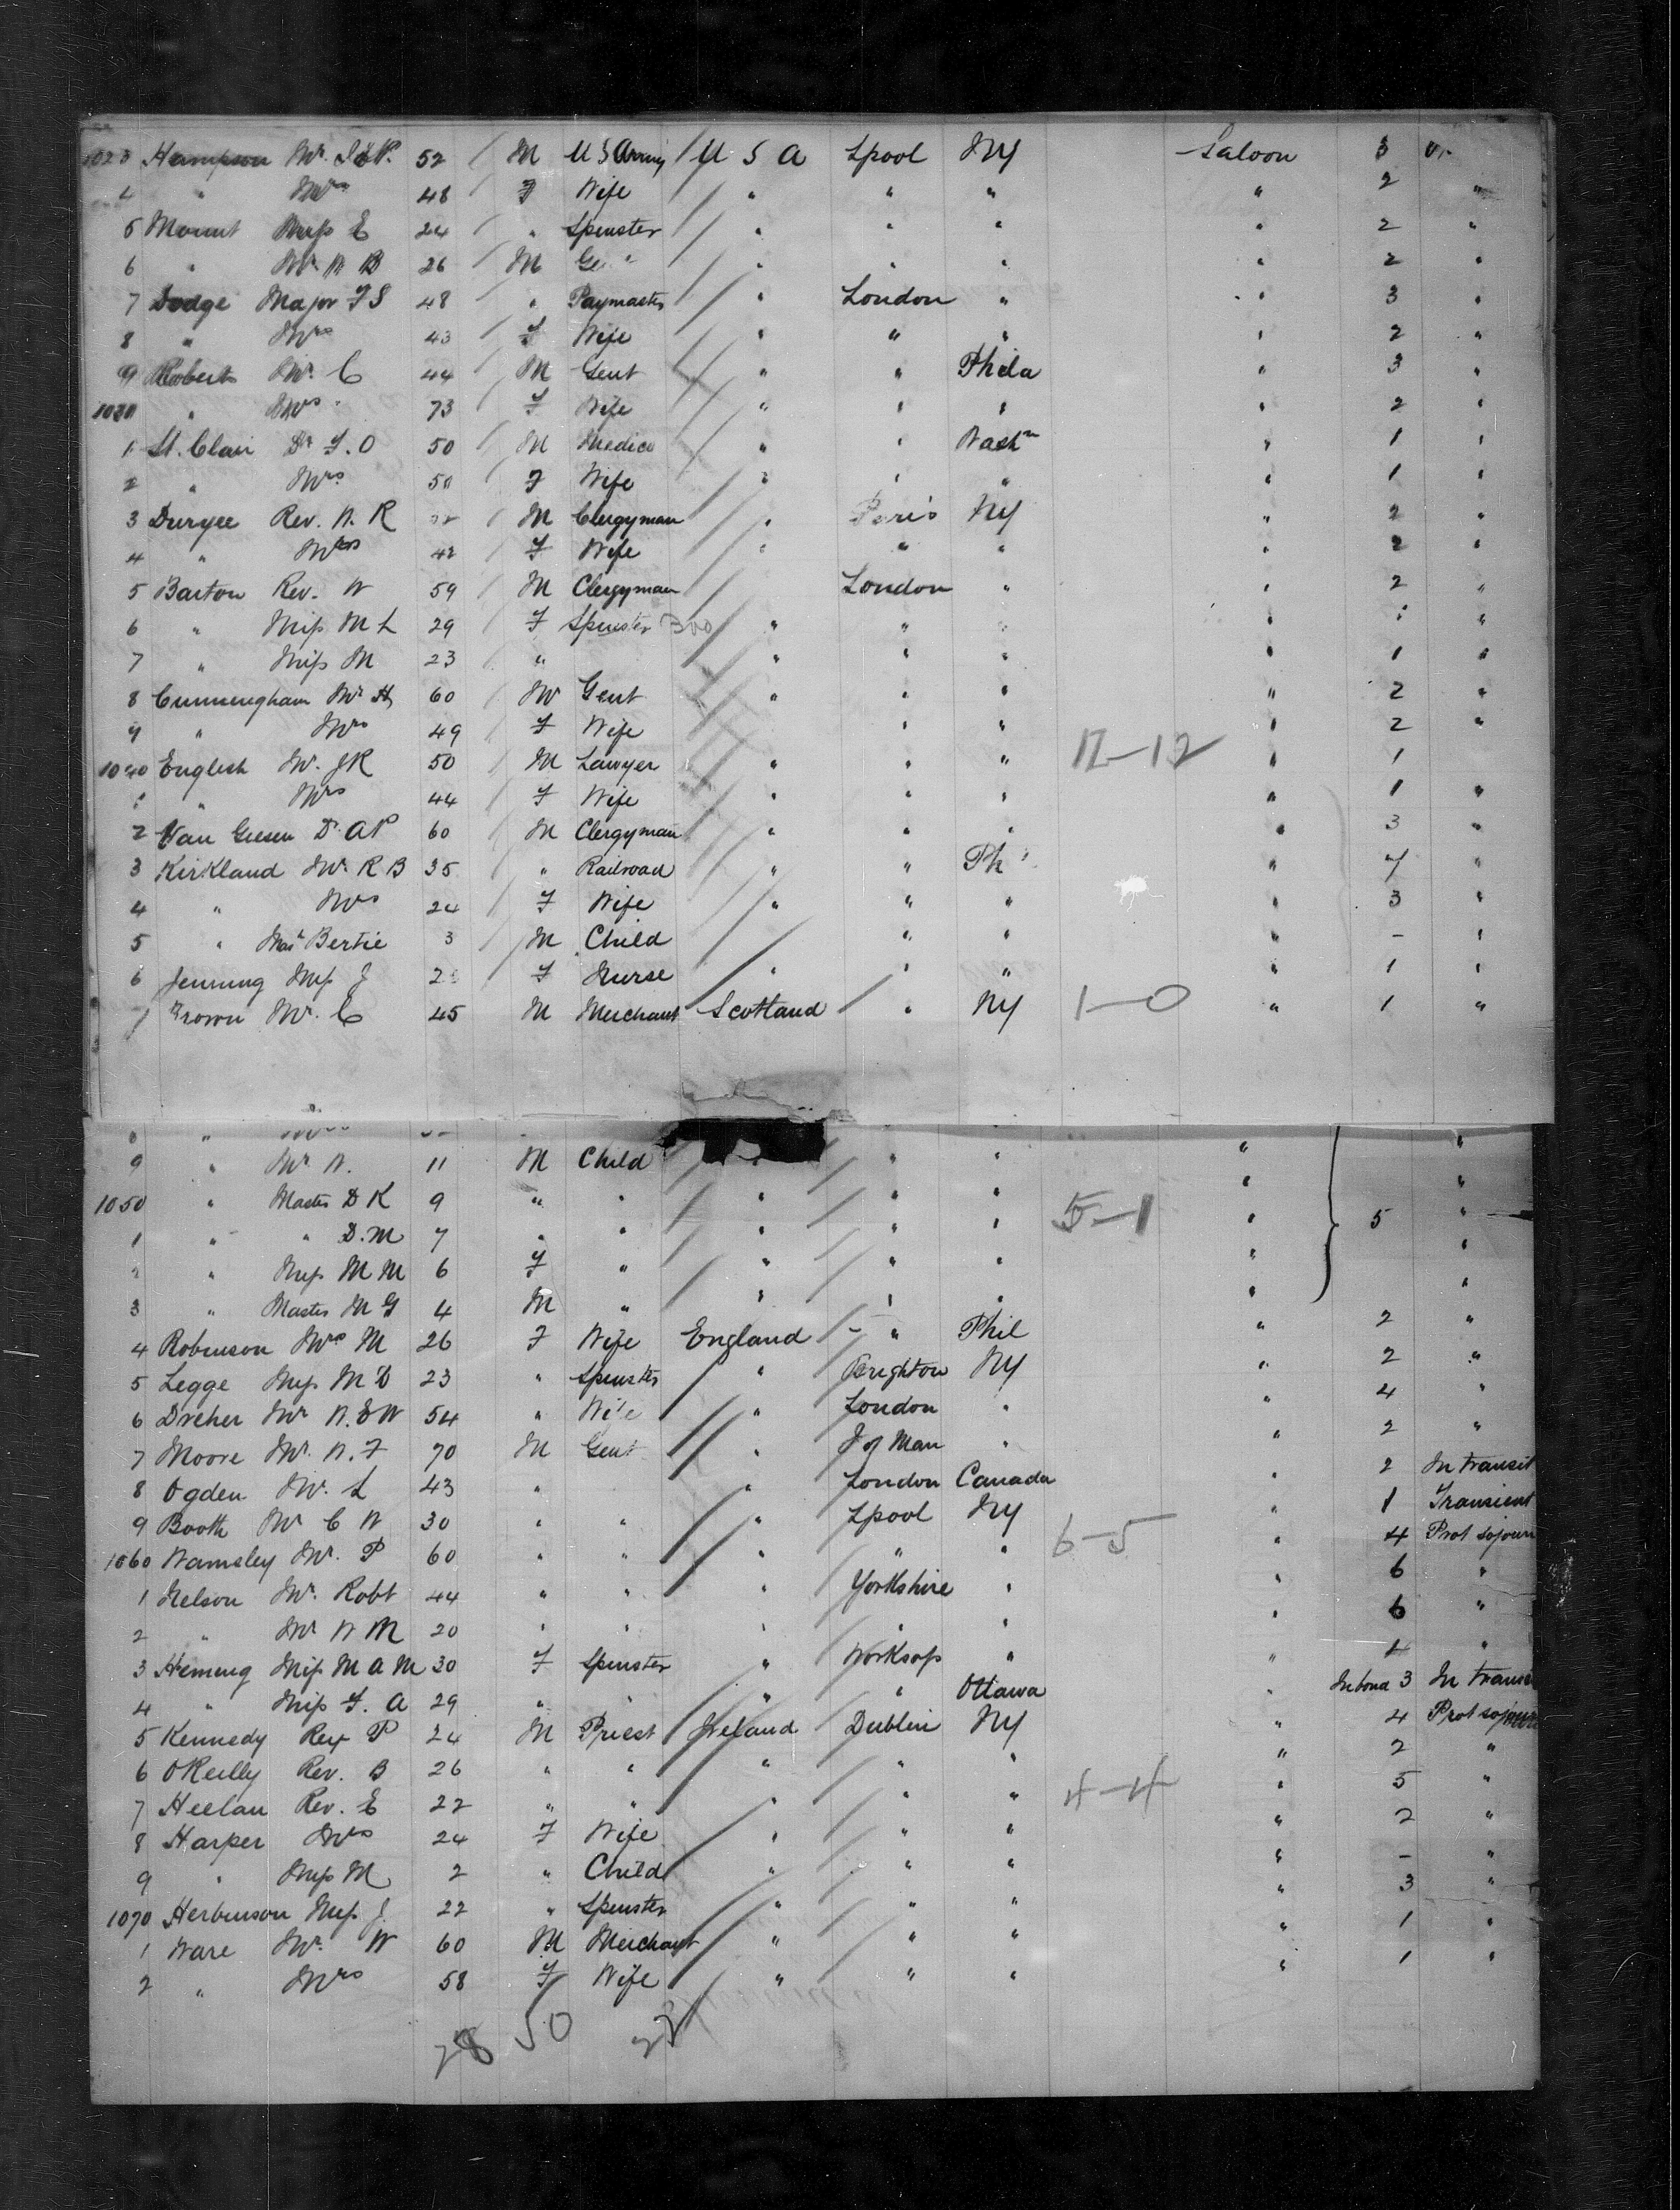 1023 Hampson Mr. 52 M U S Army U S A Lpool NY Saloon 3
4 " Mrs 48 F Wife " " " " 2 "
5 Mount Miss E 24 " Spinster " " " " 2 "
6 " Mr W B 26 M " " " " 2 "
7 Dodge Major F S 48 " Paymaster " London " " 3 "
8 " Mrs 43 F Wife " " " " 2 "
9 Roberts Mr. C 44 M Gent " " Phila " 3 "
" Mrs 73 F Wife " " " " 2 "
1 St. Clair Dr F. O 50 M Medico " " Washn " 1 "
2 " Mrs 50 F Wife " " " " 1 "
3 Duryee Rev. W. R M Clergyman " Paris NY " 2 "
4 " Mrs 42 F Wife " " " " 2 "
5 Barton Rev. W 59 M Clergyman London " " 2 "
6 " Miss M L 29 F Spinster 300 " " " " 1 "
7 " Miss M 23 " " " " " 1 "
8 Cunningham Mr H 60 M Gent " " " " 2 "
9 " Mrs 49 F Wife " " " 2 "
1040 English Mr. J R 50 M Lawyer " " " 12-12 " 1
1 " Mrs 44 F Wife " " " " 1 "
2 Van Giesen Dr A P 60 M Clergyman " " " " 3 "
3 Kirkland Mr. R B 35 " Railroad " " Ph " 7 "
4 " Mrs 24 F Wife " " " " 3 "
5 " Mas Bertie 3 M Child " " " - "
6 Jenning Miss J F Nurse " " " " 1 "
7 Brown Mr. C 45 M Merchant Scotland " NY 1-0 " 1 "
8 " Mrs " "
9 " Mr W. 11 M Child " " " "
1050 " Master D K 9 " " " " " 5-1 " "
1 " " D. M 7 " " " " " " 5 "
2 " Miss M M 6 F " " " " " "
3 " Master M G 4 M " " " " " "
4 Robinson Mrs M 26 F Wife England " Phil " 2 "
5 Legge Miss M D 23 " Spinster " Brighton NY " 2 "
6 Dreher Mr W. E W 54 " Wife " London " " 4 "
7 Moore Mr. W. F 70 M Gent " I of Man " " 2 "
8 Ogden Mr. L 43 " " London Canada " 2 In transit
9 Booth Mr C W 30 " " " Lpool NY " 1 Transient
1060 Wamsley Mr. P 60 " " " " " 6-5 " 4 Prot sojourn
1 Nelson Mr. Robt 44 " " " Yorkshire " " 6 "
2 " Mr W M 20 " " " " " " 6 "
3 Heming Miss M A M 30 F Spinster " Worksop " " 1 "
4 " Miss F. A 29 " " " " Ottawa " In bond 3 In transit
5 Kennedy Rev P 24 M Priest Ireland Dublin NY " 4 Prot sojourn
6 OReilly Rev. B 26 " " " " " " 2 "
7 Heelan Rev. E 22 " " " " " 4-4 " 5 "
8 Harper Mrs 24 F Wife " " " " 2 "
9 " Miss M 2 " Child " " " " - "
1070 Herbinson Miss J 22 " Spinster " " " " 3 "
1 Ware Mr. W 60 M Merchant " " " " 1 "
2 " Mrs 58 F Wife " " " " 1 "
28 50